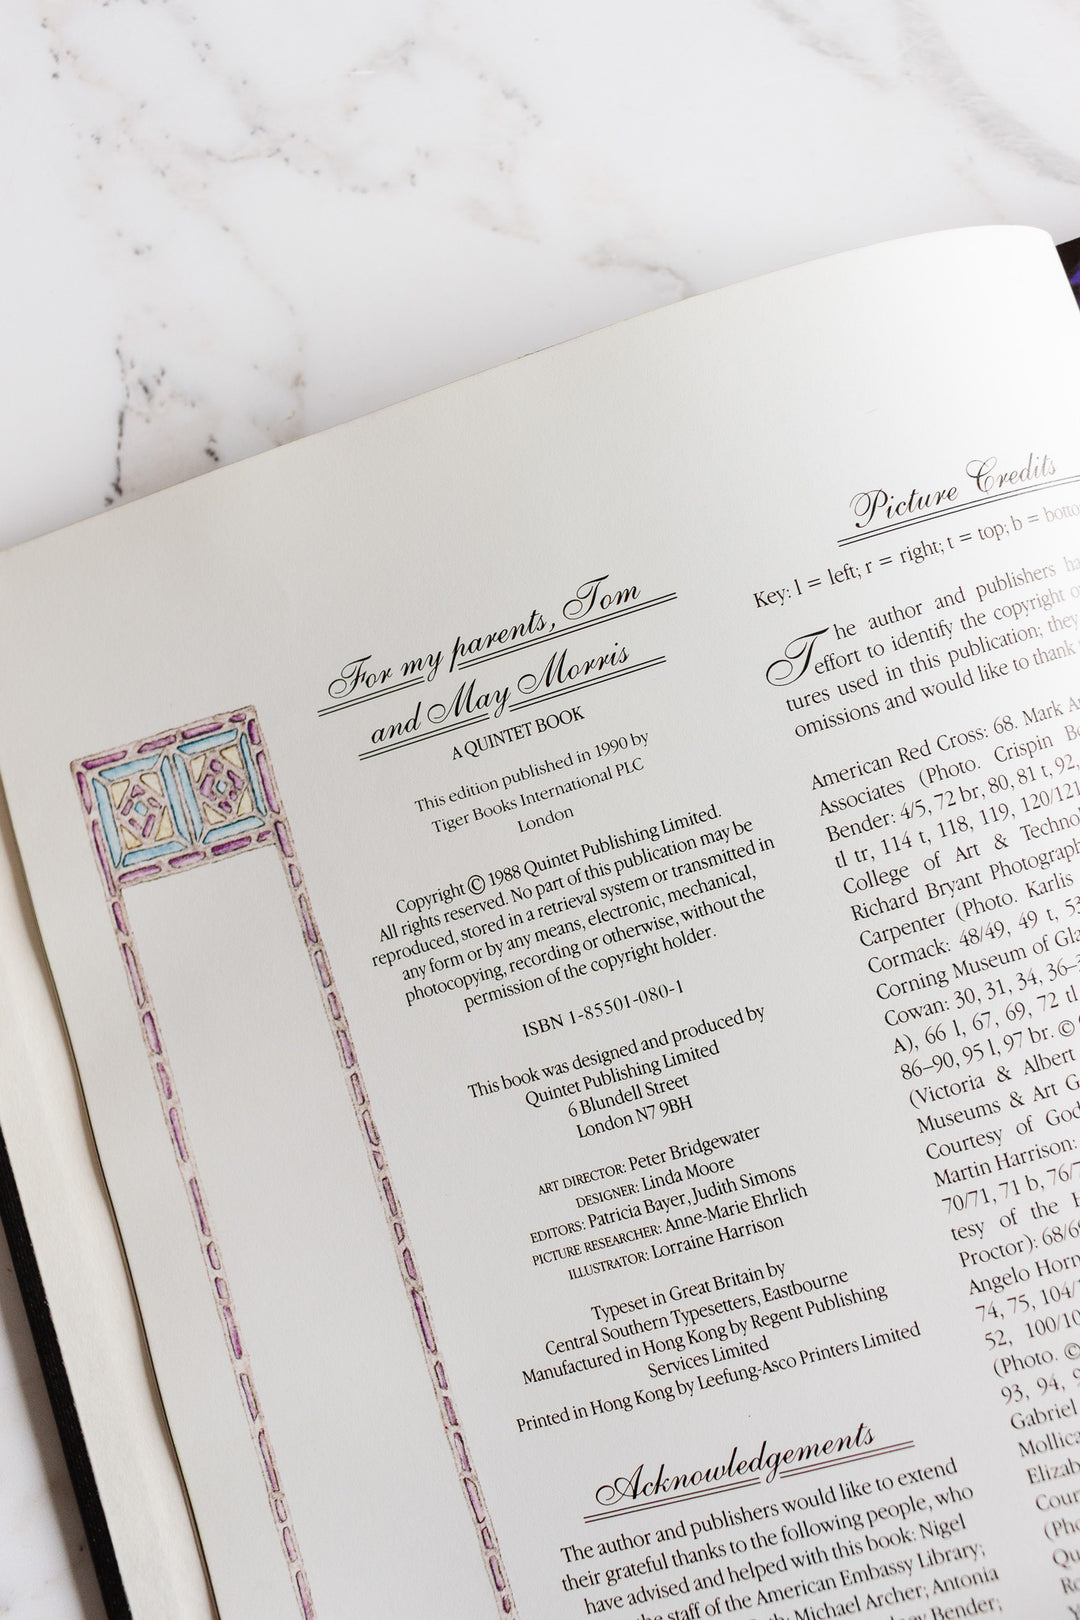 For my parents, Tom
and May Morris
A QUINTET BOOK
This edition published in 1990 by
Tiger Books International PLC
London
Copyright © 1988 Quintet Publishing Limited.
All rights reserved. No part of this publication may be
reproduced, stored in a retrieval system or transmitted in
any form or by any means, electronic, mechanical,
photocopying, recording or otherwise, without the
permission of the copyright holder.
ISBN 1-85501-080-1
This book was designed and produced by
Quintet Publishing Limited
6 Blundell Street
London N7 9BH
ART DIRECTOR: Peter Bridgewater
DESIGNER: Linda Moore
EDITORS: Patricia Bayer, Judith Simons
PICTURE RESEARCHER: Anne-Marie Ehrlich
ILLUSTRATOR: Lorraine Harrison
Typeset in Great Britain by
Central Southern Typesetters, Eastbourne
Manufactured in Hong Kong by Regent Publishing
Services Limited
Printed in Hong Kong by Leefung-Asco Printers Limited
Acknowledgements
The author and publishers would like to extend
their grateful thanks to the following people, who
have advised and helped with this book: Nigel
the staff of the American Embassy Library;
Michael Archer; Antonia
Bender;
Picture Credits
Key: l = left; r = right; t = top; b =
The author and publishers
effort to identify the copyright
tures used in this publication; they
omissions and would like to thank
American Red Cross: 68. Mark
Associates (Photo. Crispin
Bender: 4/5, 72 br, 80, 81 t, 92,
tl tr, 114 t, 118, 119, 120/121
College of Art &
Richard Bryant
Carpenter (Photo. Karlis
Cormack: 48/49, 49 t,
Corning Museum of
Cowan: 30, 31, 34,
A), 66 l, 67, 69, 72 tl
86–90, 95 l, 97 br. ©
(Victoria & Albert
Museums & Art
Courtesy of
Martin Harrison:
70/71, 71 b,
tesy of the
Proctor):
Angelo
74, 75,
52,
(Photo. ©
93, 94,
Gabriel